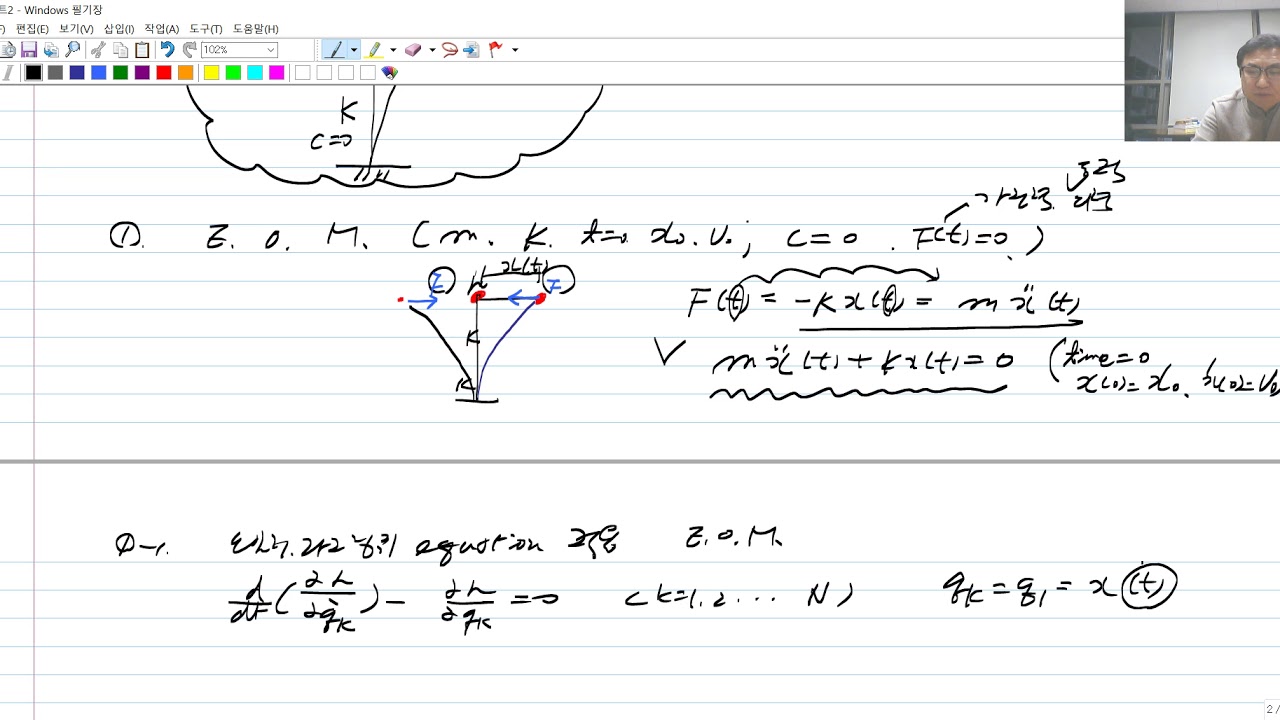 트2 - Windows 필기장
편집(E) 보기(V) 삽입(I) 작업(A) 도구(T) 도움말(H)
102%
K
C=0
①. E. O. M. (m. K. t=0. x₀. v₀ ; C=0. F(t)=0.)
x(t)
F F
K
K
F(t) = -Kx(t) = mẍ(t)
mẍ(t) + Kx(t) = 0 (time=0
x(0)=x₀. ẋ(0)=v₀
①-1. equation 적용 E.O.M.
d/dt (∂L/∂q̇_K) - ∂L/∂q_K = 0 (K=1, 2 ... N) q_K = q₁ = x(t)
2 /